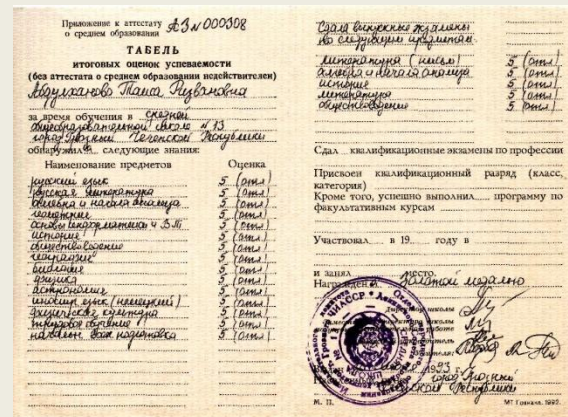 Приложение к аттестату
о среднем образовании
АЗ № 000308
ТАБЕЛЬ
итоговых оценок успеваемости
(без аттестата о среднем образовании недействителен)
Абдулханова Таиса Ризвановна
за время обучения в средней
общеобразовательной школе № 13
город Грозный Чеченской Республики
обнаружил следующие знания:
Наименование предметов Оценка
русский язык 5 (отл)
русская литература 5 (отл)
алгебра и начала анализа 5 (отл)
геометрия 5 (отл)
основы информатики и ВТ 5 (отл)
история 5 (отл)
обществоведение 5 (отл)
география 5 (отл)
биология 5 (отл)
физика 5 (отл)
астрономия 5 (отл)
иностр. язык (немецкий) 5 (отл)
физическая культура 5 (отл)
трудовое обучение 5 (отл)
начальн. воен. подготовка 5 (отл)
Сдала выпускные экзамены
по следующим предметам:
литература (письм) 5 (отл)
алгебра и начала анализа 5 (отл)
история 5 (отл)
литература 5 (отл)
обществоведение 5 (отл)
Сдал квалификационные экзамены по профессии
Присвоен квалификационный разряд (класс,
категория)
Кроме того, успешно выполнил программу по
факультативным курсам
Участвовал в 19 году в
и занял место.
Награжден Золотой медалью
Директор школы
1993 г.
город Грозный
Чеченской Республики
М. П.
МТ Гознака. 1992.